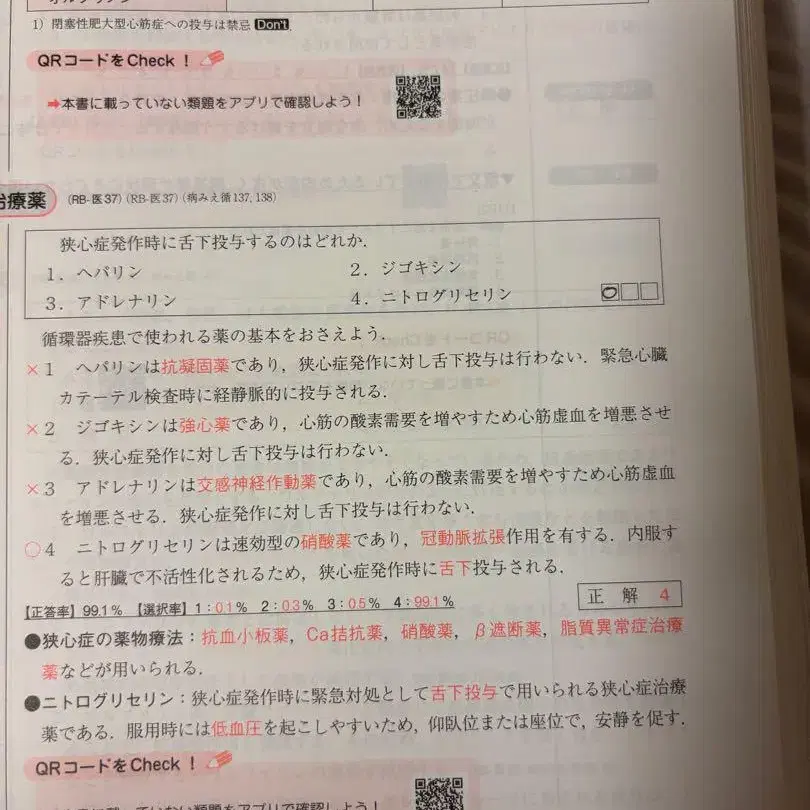 1) 閉塞性肥大型心筋症への投与は禁忌 Don't.
QRコードをCheck!
➡本書に載っていない類題をアプリで確認しよう!
治療薬 (RB-医37) (RB-医37) (病みえ循137, 138)
狭心症発作時に舌下投与するのはどれか.
1. ヘパリン 2. ジゴキシン
3. アドレナリン 4. ニトログリセリン
循環器疾患で使われる薬の基本をおさえよう.
×1 ヘパリンは抗凝固薬であり, 狭心症発作に対し舌下投与は行わない. 緊急心臓
カテーテル検査時に経静脈的に投与される.
×2 ジゴキシンは強心薬であり, 心筋の酸素需要を増やすため心筋虚血を増悪させ
る. 狭心症発作に対し舌下投与は行わない.
×3 アドレナリンは交感神経作動薬であり, 心筋の酸素需要を増やすため心筋虚血
を増悪させる. 狭心症発作に対し舌下投与は行わない.
○4 ニトログリセリンは速効型の硝酸薬であり, 冠動脈拡張作用を有する. 内服す
ると肝臓で不活性化されるため, 狭心症発作時に舌下投与される.
【正答率】99.1% 【選択率】1:0.1% 2:0.3% 3:0.5% 4:99.1% 正解 4
●狭心症の薬物療法:抗血小板薬, Ca拮抗薬, 硝酸薬, β遮断薬, 脂質異常症治療
薬などが用いられる.
●ニトログリセリン:狭心症発作時に緊急対処として舌下投与で用いられる狭心症治療
薬である. 服用時には低血圧を起こしやすいため, 仰臥位または座位で, 安静を促す.
QRコードをCheck!
に載っていない類題をアプリで確認しよう!